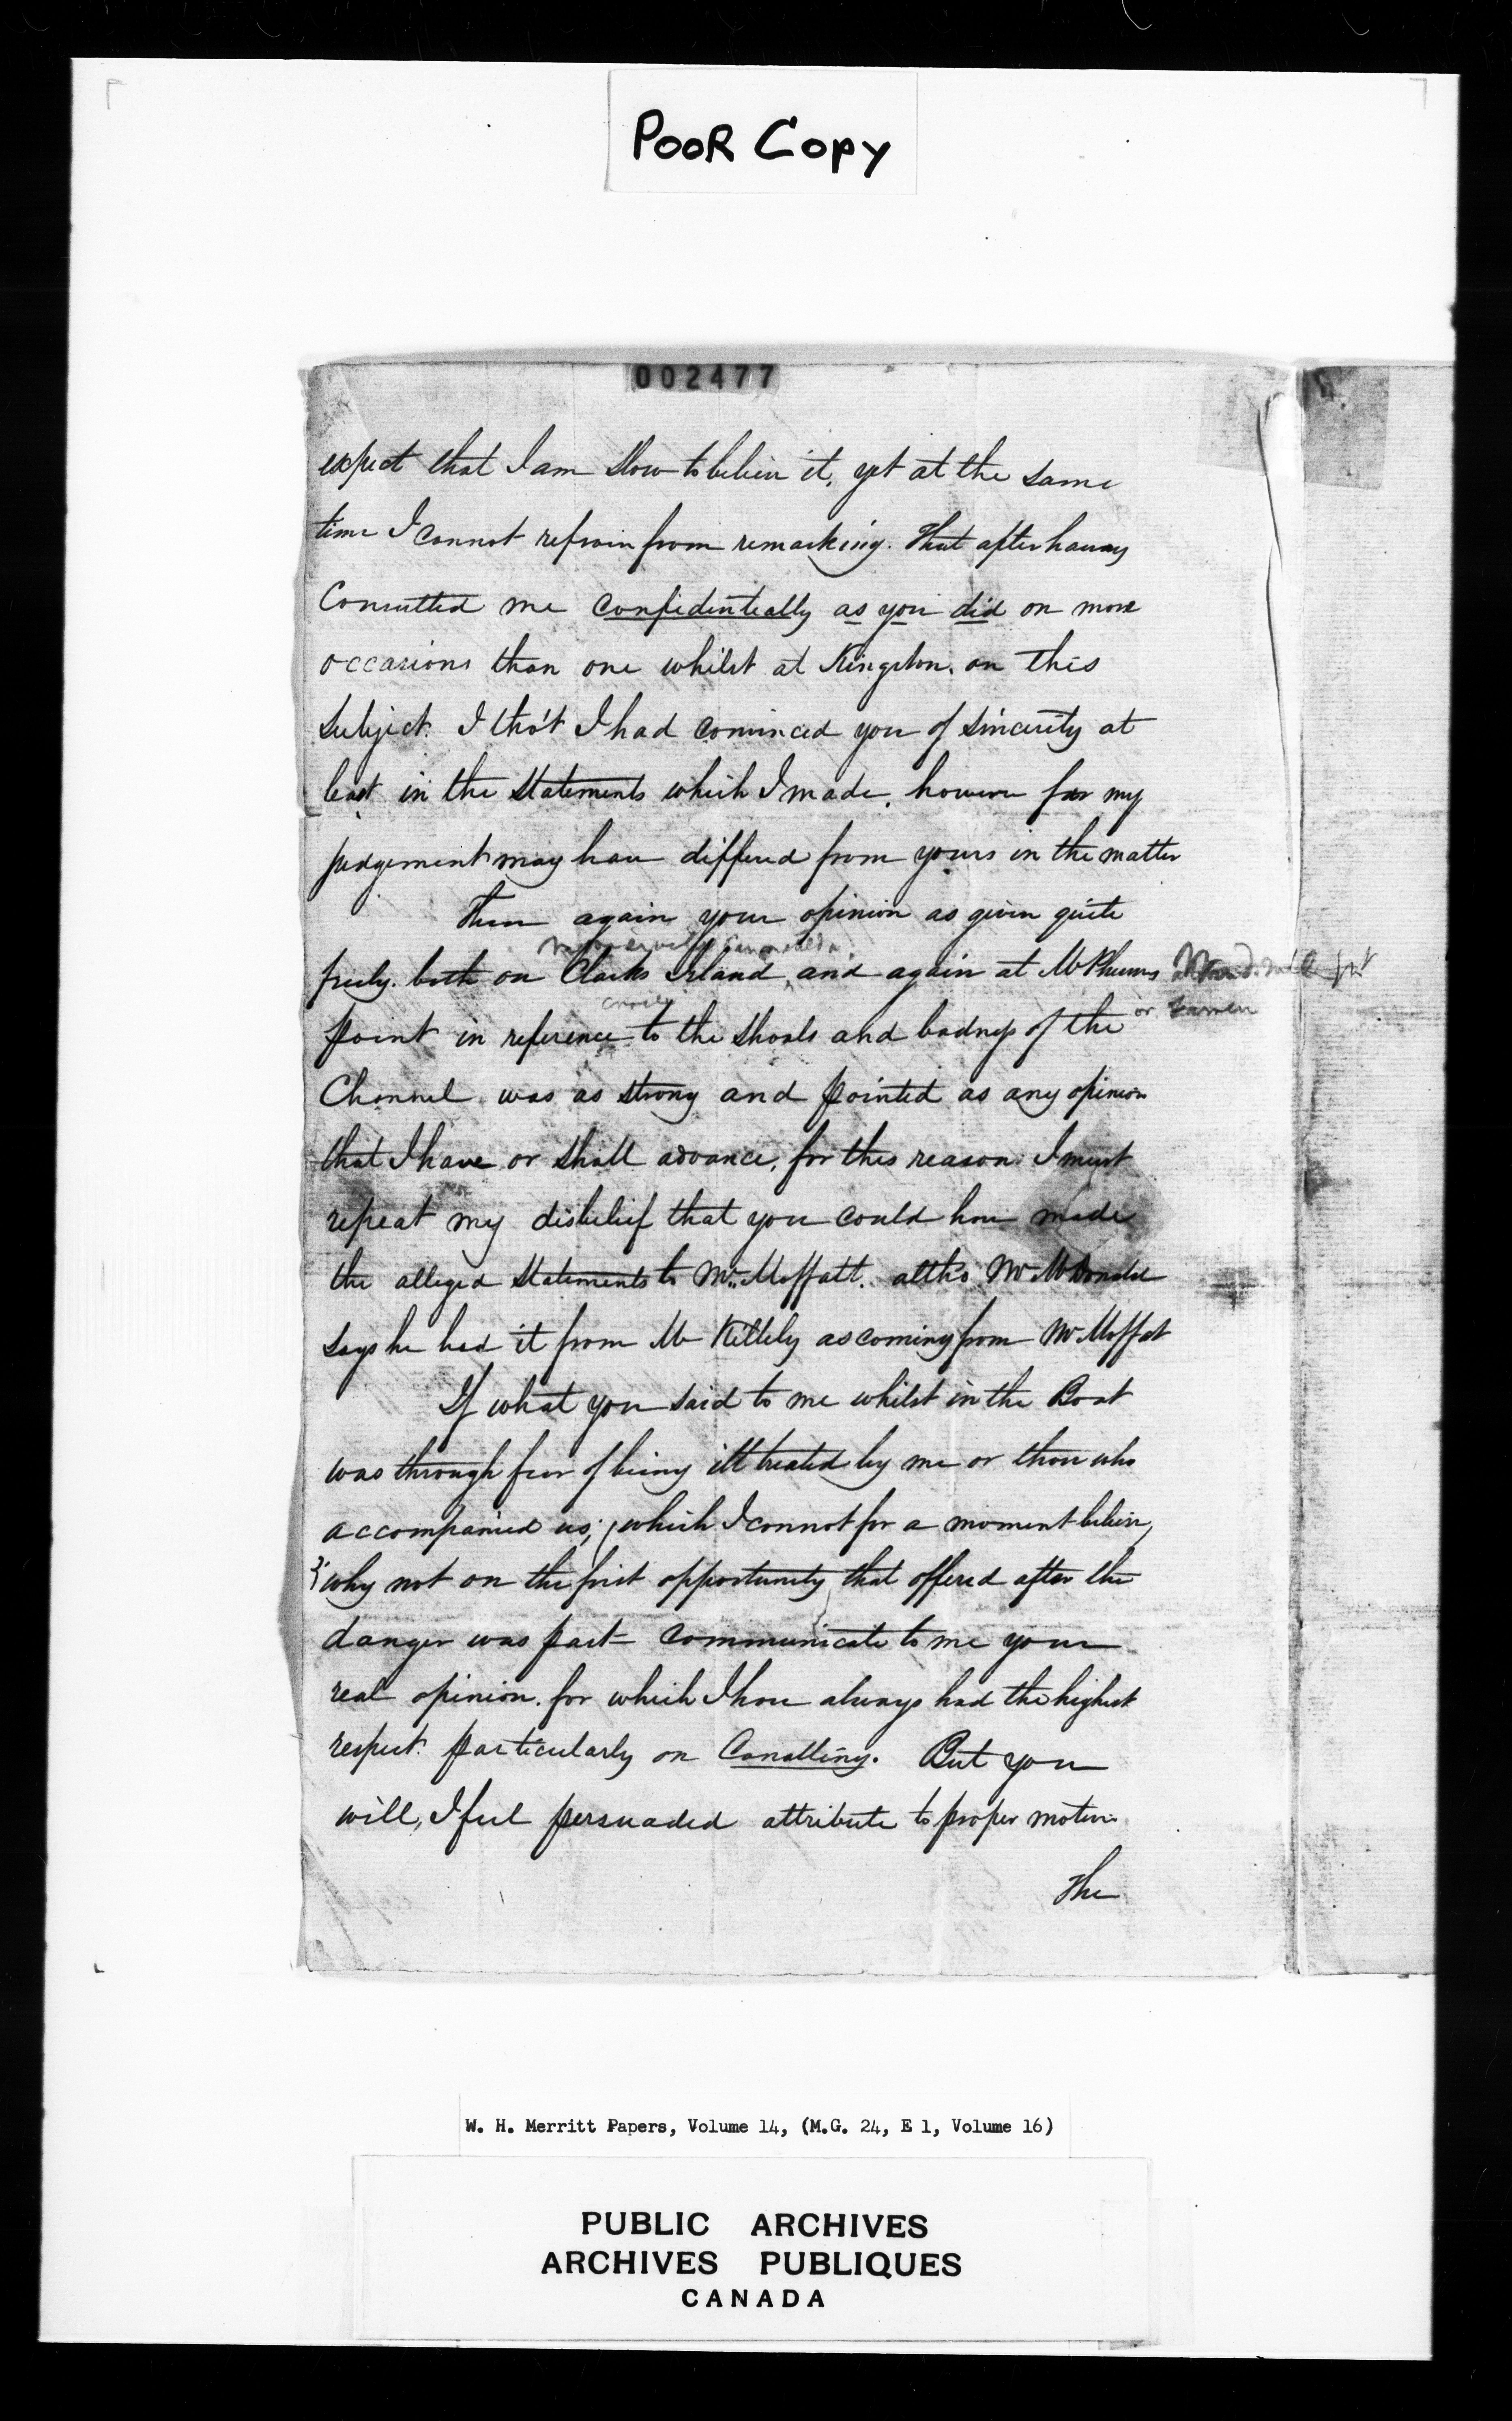 POOR COPY
002477
expect that I am slow to believe it, yet at the same
time I cannot refrain from remarking. That after having
Consulted me confidentially as you did on more
occasions than one whilst at Kingston. on this
subject. I tho't I had convinced you of sincerity at
least in the statements which I made, however far my
judgement may have differed from yours in the matter
Then again your opinion as given quite
freely. both on Clarks Island, and again at
or
point in reference to the shoals and badness of the
Channel was as strong and pointed as any opinion
that I have or shall advance, for this reason I must
repeat my disbelief that you could have made
the alleged statements to Mr. Moffatt. altho' Mr McDonald
says he had it from Mr Killely as coming from Mr Moffat
If what you said to me whilst in the Boat
was through fear of being ill treated by me or those who
accompanied us; (which I cannot for a moment believe,
why not on the first opportunity that offered after the
danger was past communicate to me your
real opinion. for which I have always had the highest
respect. particularly on Canalling. But you
will, I feel persuaded attribute to proper motives
The
W. H. Merritt Papers, Volume 14, (M.G. 24, E 1, Volume 16)
PUBLIC ARCHIVES
ARCHIVES PUBLIQUES
CANADA